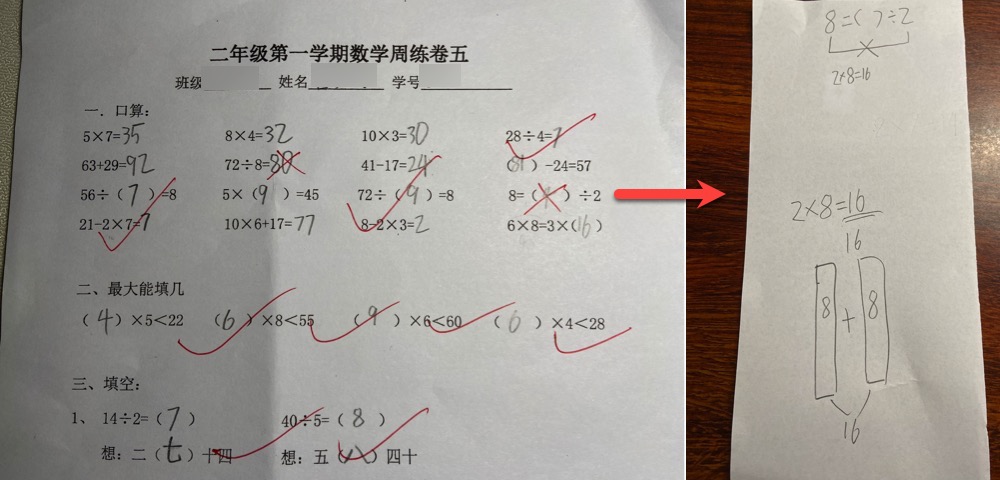 二年级第一学期数学周练卷五
班级 姓名 学号
一．口算：
5×7=35 8×4=32 10×3=30 28÷4=7
63+29=92 72÷8= 41-17=24 (81)-24=57
56÷(7)=8 5×(9)=45 72÷(9)=8 8=( )÷2
21-2×7=7 10×6+17=77 8-2×3=2 6×8=3×(16)
二、最大能填几
(4)×5<22 (6)×8<55 (9)×6<60 (6)×4<28
三、填空：
1、 14÷2=(7) 40÷5=(8)
想：二(七)十四 想：五(八)四十
8=( )÷2
2×8=16
2×8=16
16
8 + 8
16